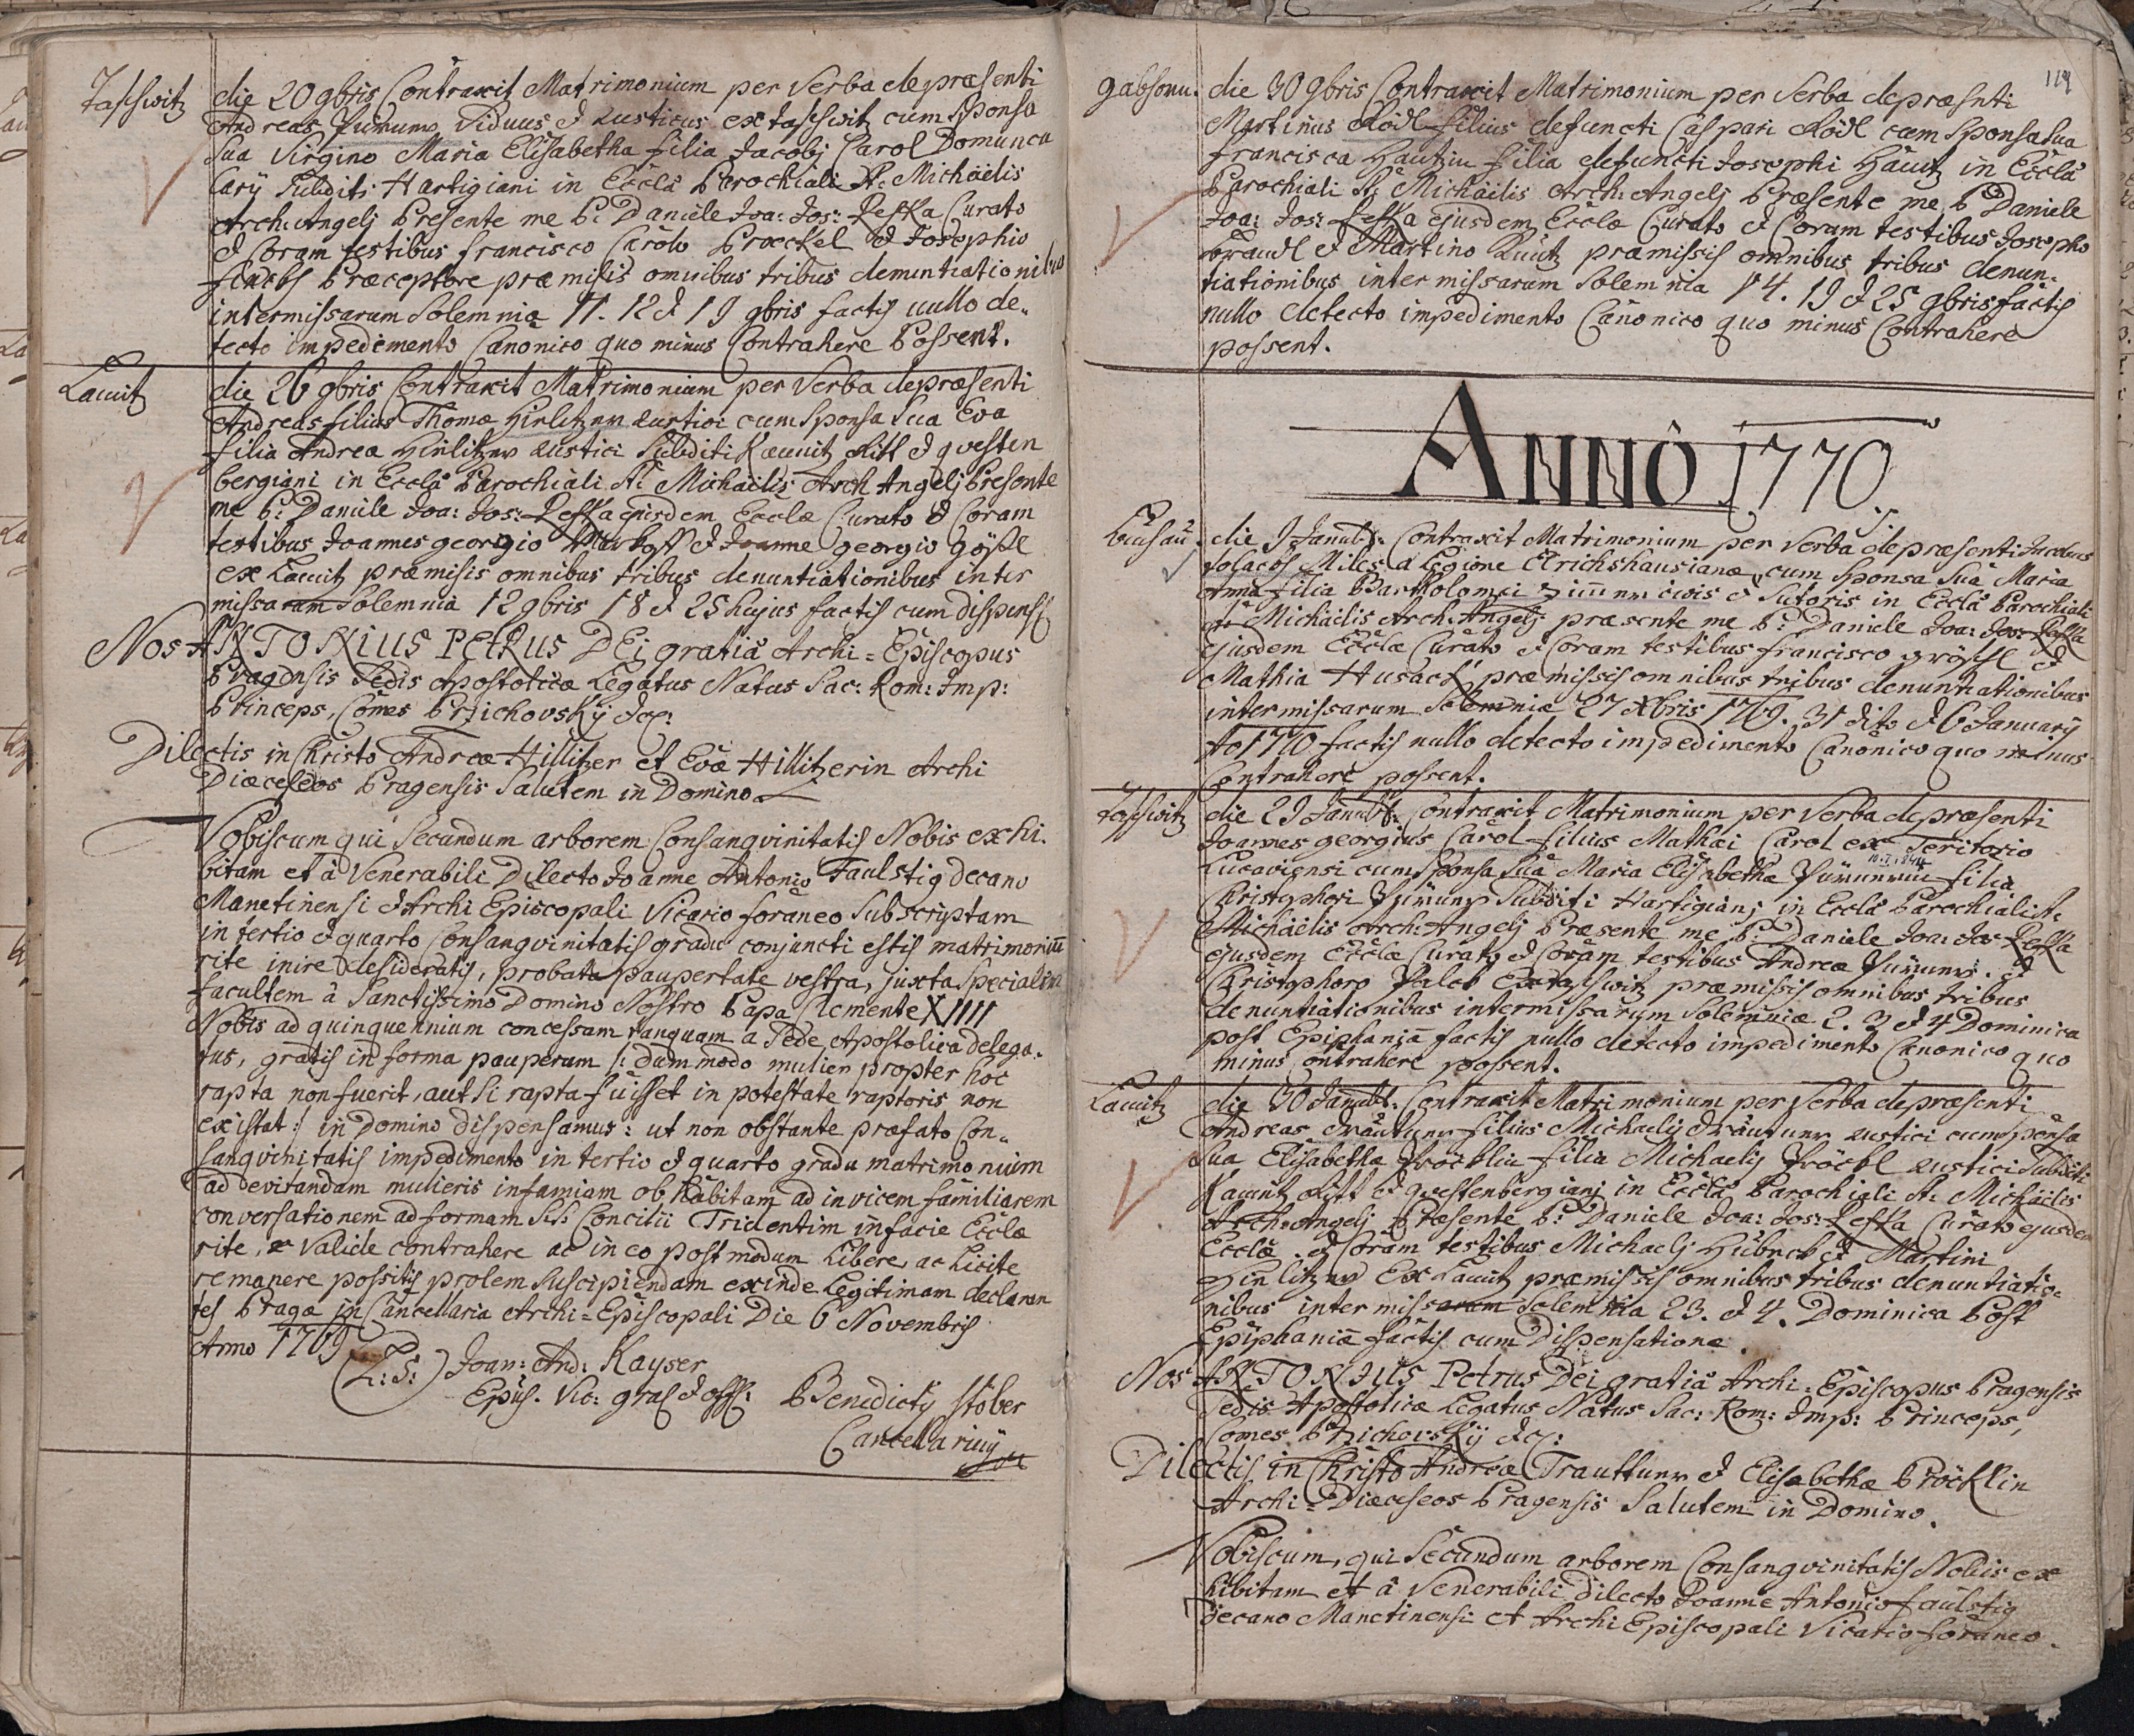 Taschwitz
die 20 9bris Contraxit Matrimonium per Verba de præsenti
Andreas Viduus et Rusticus ex Taschwitz cum Sponsa
Sua Virgine Maria Elisabetha filia Jacobj Carol Domuncu
larÿ Subditi Hartigiani in Eccla Parochiali St: Michäelis
Arch: Angelj Presente me P: Daniele Joa: Jos: Leska Curato
et Coram testibus Francisco Carolo Prockel et Josepho
Præceptore præmisis omnibus tribus denuntiationibus
intermissarum Solemnia 11. 12 et 19 9bris factis nullo de„
tecto impedimento Canonico quo minus Contrahere Possent.
Lacuitz
die 26 9bris Contraxit Matrimonium per Verba de præsenti
Andreas filius Thomæ Hirlitzer Rustici cum Sponsa Sua Eva
filia Andreæ Hirlitzer Rustici Subditi Kaunitz Ritt et qvesten
bergiani in Eccla Parochiali St: Michäelis Arch Angelj Presente
me P: Daniele Joa: Jos: Leska ejusdem Ecclæ Curato et Coram
testibus Joannes georgio et Joanne georgio gößl
ex Lacuitz præmisis omnibus tribus denuntiationibus inter
missarum Solemnia 12 9bris 18 et 25 hujus factis cum dispens
Nos ANTONIUS PETRUS DEi gratiâ Archi=Episcopus
Pragensis Sedis Apostolicæ Legatus Natus Sac: Rom: Imp:
Princeps, Comes Przichovskÿ etc:
Dilectis in Christo Andreæ Hillitzer et Evæ Hillitzerin Archi
Diæceseos Pragensis Salutem in Domino
Vobiscum qui Secundum arborem Consangvinitatis Nobis exhi.
bitam et à Venerabili Dilecto Joanne Antonio Faulstig decano
Manetinensi et Archi Episcopali Vicario foraneo Subscriptam
in tertio et quarto Consangvinitatis gradu conjuncti estis matrimonium
rite inire desideratis, probata paupertate vestra, juxta Specialem
facultem â Sanctissimo Domino Nostro Papa Clemente XIIII
Nobis ad quinquennium concessam tanquam a Sede Apostolica delega.
tus, gratis in forma pauperum /: dummodo mulier propter hoc
rapta non fuerit, aut si rapta fuisset in potestate raptoris non
existat :/ in Domino dispensamus: ut non obstante præfato Con„
sangvinitatis impedimento in tertio et quarto gradu matrimonium
ad devitandam mulieris infamiam ob habitam ad invicem familiarem
conversationem ad formam S:S: Concilii Tridentini in facie Ecclæ
rite, et valide contrahere ac in eo postmodum Libere, ac Licite
remanere possitis prolem Suscipiendam exinde Legitimam declaran
tes Pragæ in Cancellaria Archi=Episcopali Die 6 Novembris
Anno 1769
(L:S:) Joan: And: Kayser
Epus. Vic: gral et offl: P Benedictÿ Stöber
Cancellariuÿ
119
gabhorn.
die 30 9bris Contraxit Matrimonium per Verba de præsnti
Martinus Rödl filius defuncti Caspari Rödl cum Sponsa sua
Francisca Hautzin filia defuncti Josephi Hautz in Eccla
Parochiali St: Michäilis Arch: Angelj Præsente me P Daniele
Joa: Jos: Leska ejusdem Ecclæ Curato et Coram testibus Josepho
Braudl et Martino Kuntz præmissis omnibus tribus denun„
tiationibus intermissarum Solemnia 14. 19 et 25 9bris factis
nullo detecto impedimento Canonico quo minus Contrahere
possent.
ANNÔ 1770.
Luchau.
die 9 Januar: Contraxit Matrimonium per Verba de præsenti Jacobus
Miles a Legione Elrichshausianæ, cum Sponsa Sua Maria
Anna filia Bartholomei civis et Sutoris in Eccla Parochiali
St: Michäelis Arch: Angelj præsente me P: Daniele Joa: Jos: Leska
ejusdem Ecclæ Curato et Coram testibus Francisco gröschl et
Mathia Husack præmissis omnibus tribus denuntiationibus
intermissarum Solemnia 27 Xbris 1769. 31 dito et 6 Januarÿ
Ao 1770 factis nullo detecto impedimento Canonico quo minus
Contrahere possent.
Taschwitz
die 29 Januar: Contraxit Matrimonium per Verba de præsenti
Joannes georgius Carol filius Mathæi Carol ex Teritorio
Lucaviensi cum Sponsa Sua Maria Elisabetha filia
Christophori Subditi Hartigianj in Eccla Parochiali St.
Michäelis Arch: Angelj Præsente me P: Daniele Joa: Jos: Leska
ejusdem Ecclæ Curato et Coram testibus Andrea et
Christophoro Palet Ex taschwitz præmissis omnibus tribus
denuntiationibus intermissarum Solemniæ 2. 3 et 4 Dominica
post Epiphaniã factis nullo detecto impedimento Canonico quo
minus Contrahere possent.
Lacuitz
die 30 Januar: Contraxit Matrimonium per Verba de præsenti
Andreas Träutner filius Michaelis Träutner Rustici cum Sponsa
Sua Elisabetha Pröcklin filia Michaelis Pröckl Rustici Subditi
Kaunitz Ritt et qvestenbergianj in Eccla Parochiali St: Michäelis
Arch: Angelj Præsente P: Daniele Joa: Jos: Leska Curato ejusdem
Ecclæ. et Coram testibus Michaelj Hubrck et Martini
Hirlitzer Ex Lacuitz præmissis omnibus tribus denuntiatio=
nibus intermissarum Solemnia 2 3. et 4. Dominica Post
Epiphaniã factis cum Dispensatione.
Nos ANTONIUS Petrus Dei gratiâ Archi=Episcopus Pragensis
Sedis Apostolicæ Legatus Natus Sac: Rom: Imp: Princeps,
Comes Przichovskÿ etc:
Dilectis in Christo Andreæ Trauttner et Elisabethæ Pröcklin
Archi=Diæceseos Pragensis Salutem in Domino.
Vobiscum, qui Secundum arborem Consangvinitatis Nobis ex
hibitam et â Venerabili Dilecto Joanne Antonio Faulstig
Decano Manetinensi et Archi Episcopali Vicario foraneo.